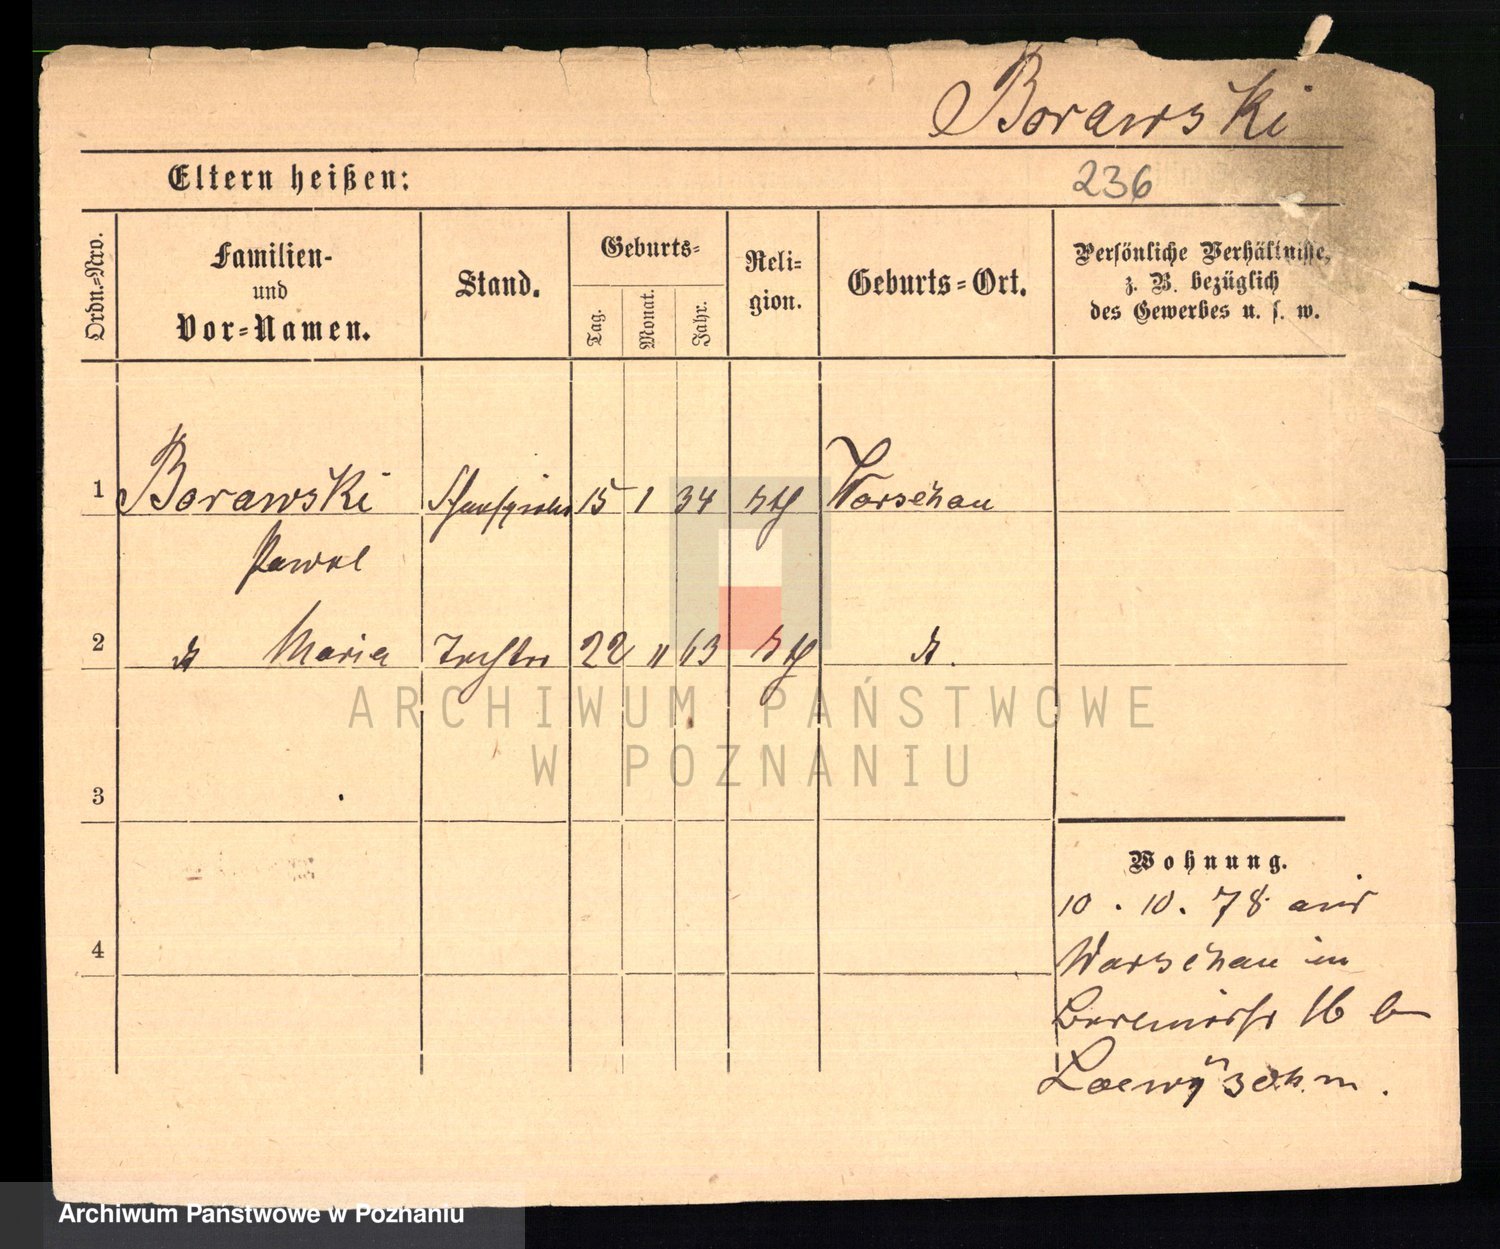 Borawski
Eltern heißen:
236
Ordn.-Nro.
Familien-
und
Vor-Namen.
Stand.
Geburts-
Tag.
Monat.
Jahr.
Reli-
gion.
Geburts-Ort.
Persönliche Verhältnisse,
z. B. bezüglich
des Gewerbes u. s. w.
1 Borawski 15 1 34 kth Warschau
Pawel
2 Maria Tochter 22 " 63 kth
3
4
ARCHIWUM PAŃSTWOWE
W POZNANIU
Wohnung.
10. 10. 78 aus
Warschau in
16 b
Archiwum Państwowe w Poznaniu